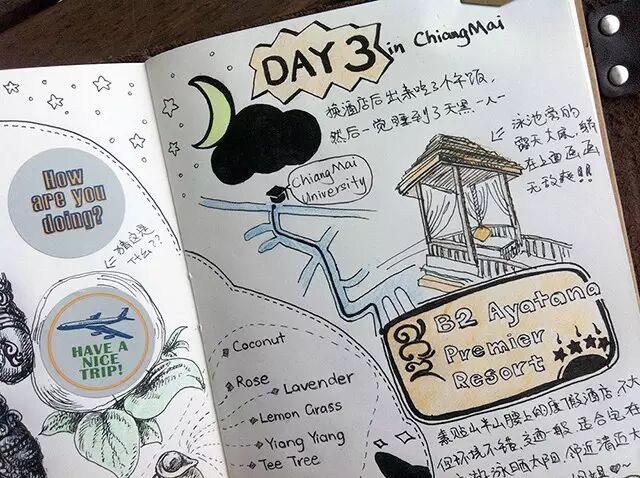 How
are you
doing?
猜这是
什么??
HAVE A
NICE
TRIP!
DAY 3 in ChiangMai
换酒店后出来吃了个午饭,
然后一觉睡到了天黑—人—
ChiangMai
University
泳池旁的
露天大床,躺
在上面画画
无敌爽!!
B2 Ayatana
Premier
Resort
Coconut
Rose
Lavender
Lemon Grass
Yiang Yiang
Tee Tree
素贴山半山腰上的度假酒店,不大
但环境不错,交通一般,适合包车
游泳晒太阳,邻近清迈大